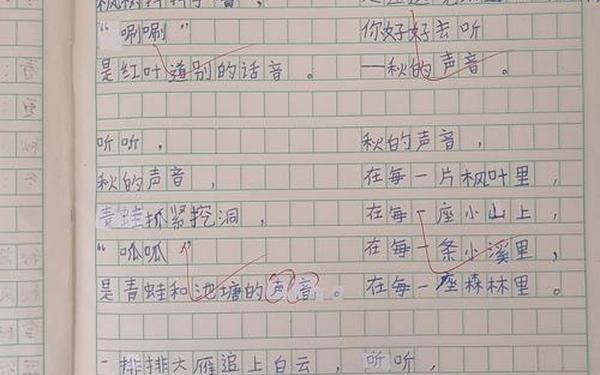 "唰唰"
是红叶道别的话音。
听听，
秋的声音，
青蛙抓紧挖洞，
"呱呱"
是青蛙和池塘的声音。
一排排大雁追上白云，
你好好去听
—秋的声音。
秋的声音，
在每一片枫叶里，
在每一座小山上，
在每一条小溪里，
在每一座森林里。
听听，